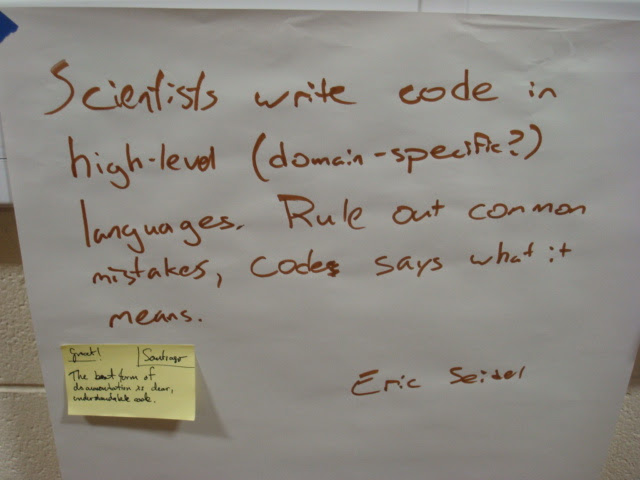 Scientists write code in
high-level (domain-specific?)
languages. Rule out common
mistakes, code says what it
means.
Great! Santiago
The best form of
documentation is clear,
understandable code.
Eric Seidel